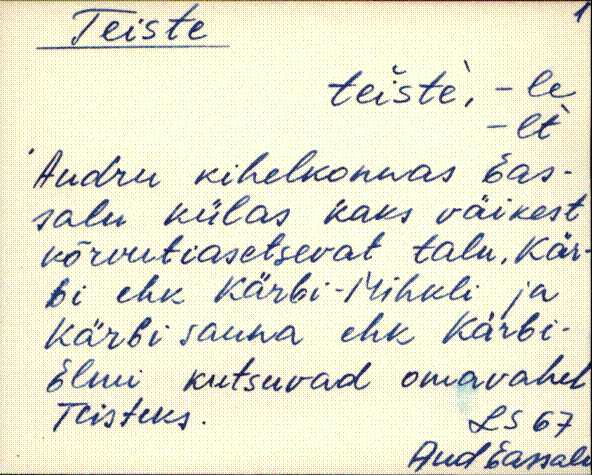 1
Teiste
teište`, -le
-lt`
Audru kihelkonnas Eas-
salu külas kaks väikest
kõrvutiasetsevat talu, Kär-
bi ehk Kärbi-Mihkli ja
Kärbi sauna ehk Kärbi-
Elmi kutsuvad omavahel
Teisteks.
LS 67
Aud Eassalu